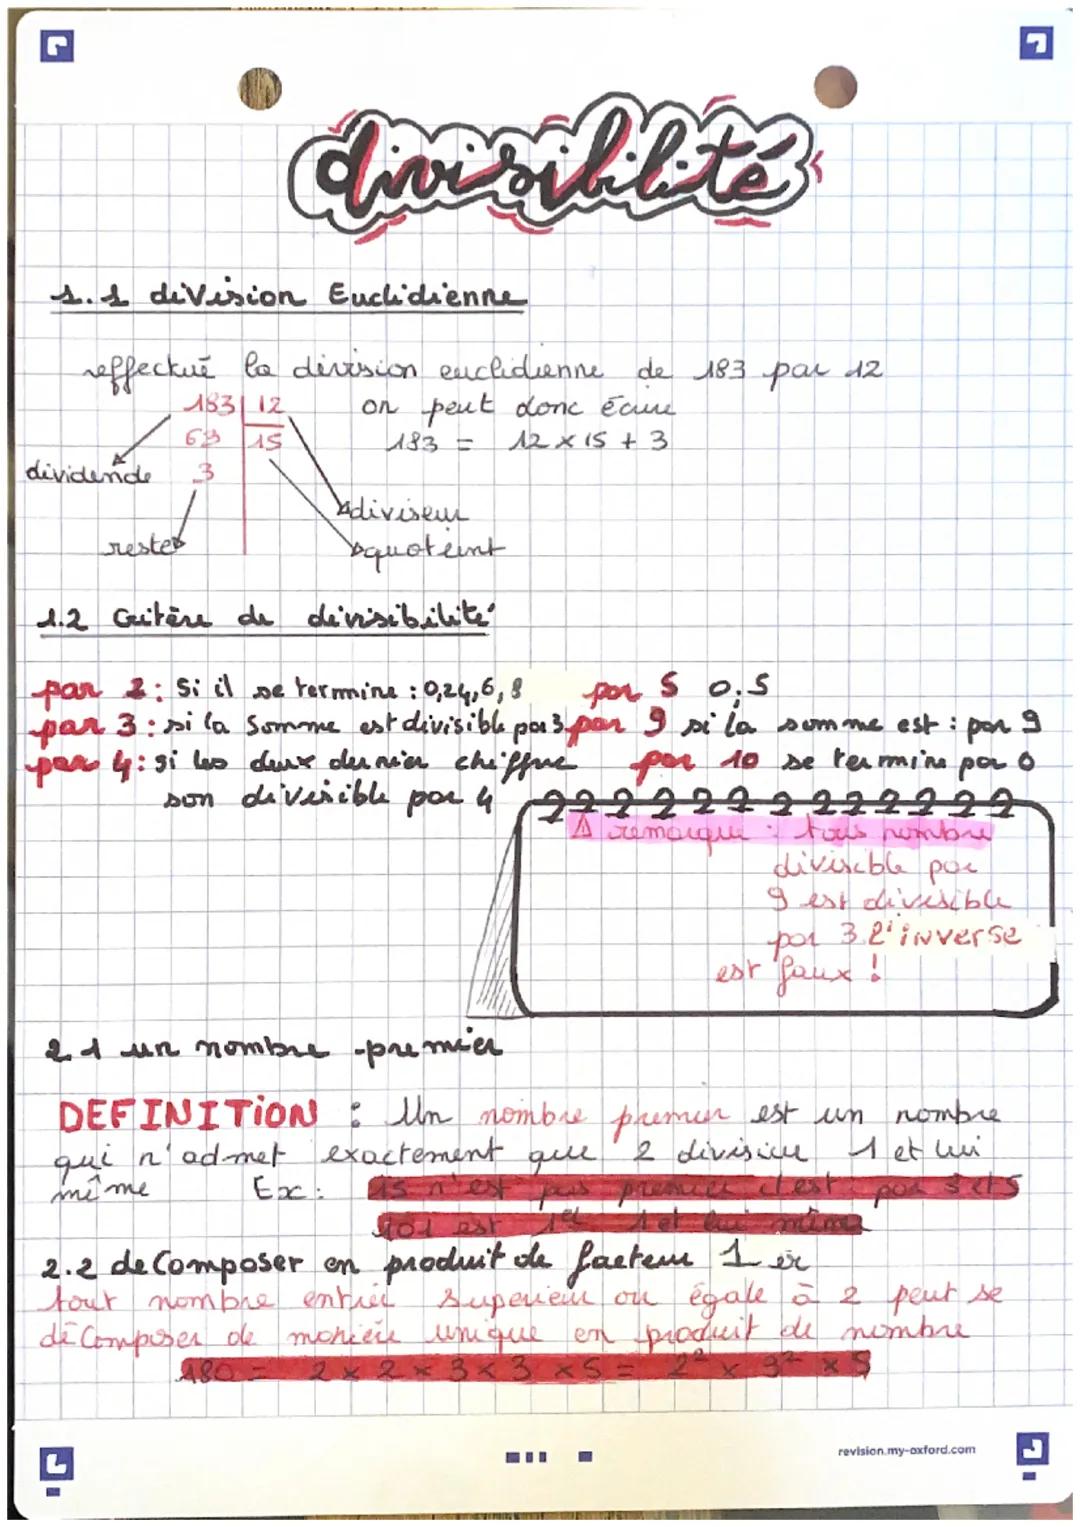 divisibilité
1.1 division Euclidienne
effectué la division euclidienne de 183 par 12
183 12
on peut donc écrire
63 15
183 = 12 × 15 + 3
dividende 3
diviseur
reste
quoteint
1.2 Critère de divisibilité
par 2 : Si il se termine : 0,24,6,8 par 5 0,5
par 3 : si la Somme est divisible par 3 par 9 si la somme est : par 9
par 4 : si les deux dernier chiffre par 10 se termine par 0
son divisible par 4
⚠ remarque : tous nombre
divisible par
9 est divisible
par 3 l'inverse
est faux !
2.1 un nombre premier
DEFINITION : Un nombre premier est un nombre
qui n'admet exactement que 2 diviseur 1 et lui
même Ex : 15 n'est pas premier c'est par 3 et 5
101 est 1er 1 et lui même
2.2 deComposer en produit de facteur 1er
tout nombre entier superieur ou égale à 2 peut se
déComposer de manière unique en produit de nombre
180 = 2 × 2 × 3 × 3 × 5 = 2² × 3² × 5
revision.my-oxford.com